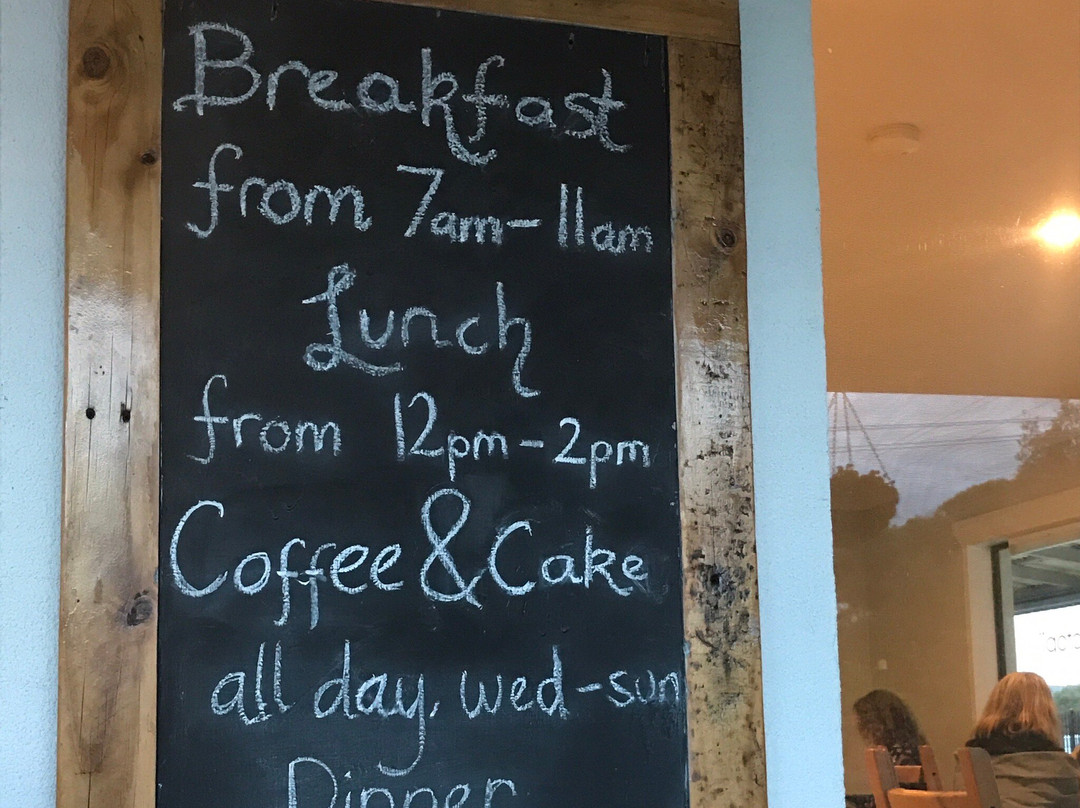 Breakfast
from 7am-11am
Lunch
from 12pm-2pm
Coffee & Cake
all day, wed-sun
Dinner